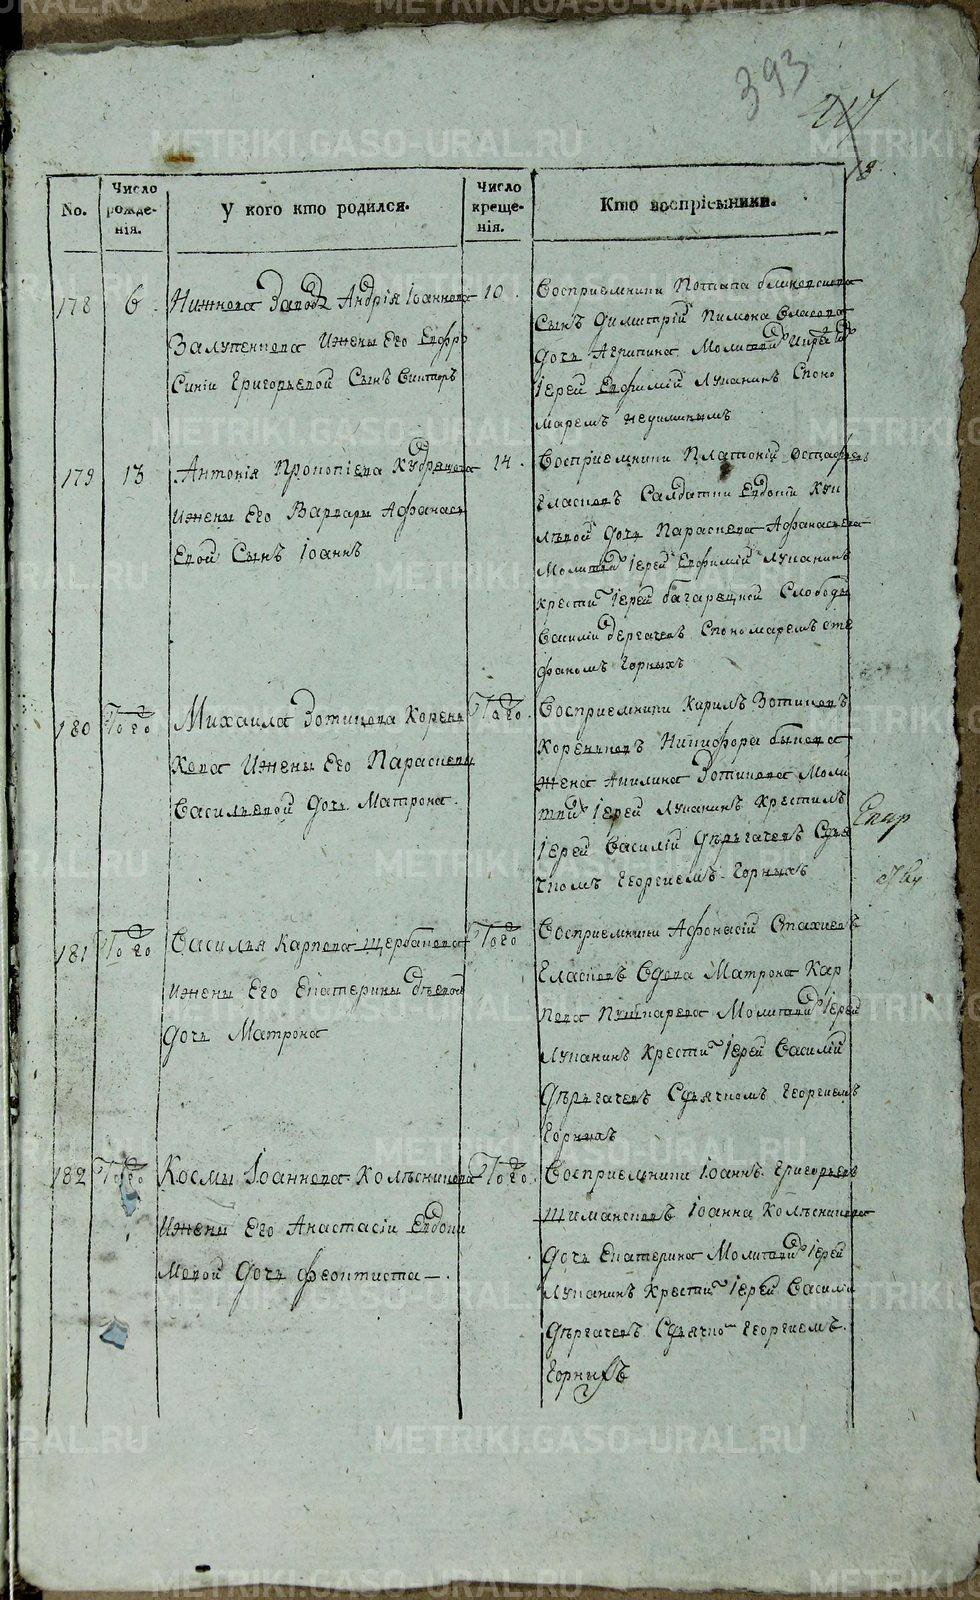 393
No.
Число рожде-нія.
У кого кто родился.
Число креще-нія.
Кто воспріемники.
178
6
Нижнева Завода Андрія Іоаннова
ижены Его Евфро
Синіи Григорьевой Сынъ
10
Восприемники Потапа
Сынъ Димитрій Пимона Власова
дочь Агрипина Молитвил
Іерей Евфимій Лупанинъ Споно
маремъ
179
13
Антонія Прокопіева Кудрецова
ижены Его Варвары Афанась
Евой Сынъ Іоаннъ
14
Восприемники Платоній
Власповъ Салдатки Евдокіи
дочь Параскева Афанасьева
Молитвил Іерей Евфимій Лупанинъ
крестил Іерей багарецкой Слободы
Василій дергачевъ Спономаремъ Сте
фаномъ Горныхъ
180
Того
Михаила Зотикова Корень
кова ижены Его Параскевы
Васильевой дочь Матрона
Того
Восприемники Кирилъ Зотиковъ
Кореньковъ Никифора быкова
жена Акилина Зотикова Моли
твил Іерей Лупанинъ Крестилъ
Іерей Василій дѣргачевъ Сдья
чкомъ Георгіемъ Горныхъ
181
Того
Василья Карпова Щербакова
ижены Его Екатерины
дочь Матрона
Того
Восприемники Афонасій Стахиевъ
Власповъ Вдова Матрона Кар
пова Пушкарева Молитвил Іерей
Лупанинъ Крестил Іерей Василій
дѣргачевъ Сдьячкомъ Георгиемъ
Горныхъ
182
Того
Космы Іоаннова Колѣсникова
ижены Его Анастасіи Евдоки
мовой дочь Феоктиста
Того
Восприемники Іоаннъ Григорьевъ
Шимансковъ Іоанна Колѣсникова
дочь Екатерина Молитвил Іерей
Лупанинъ Крестил Іерей Василій
дѣргачевъ Сдьячко Георгиемъ
Горныхъ
METRIKI.GASO-URAL.RU